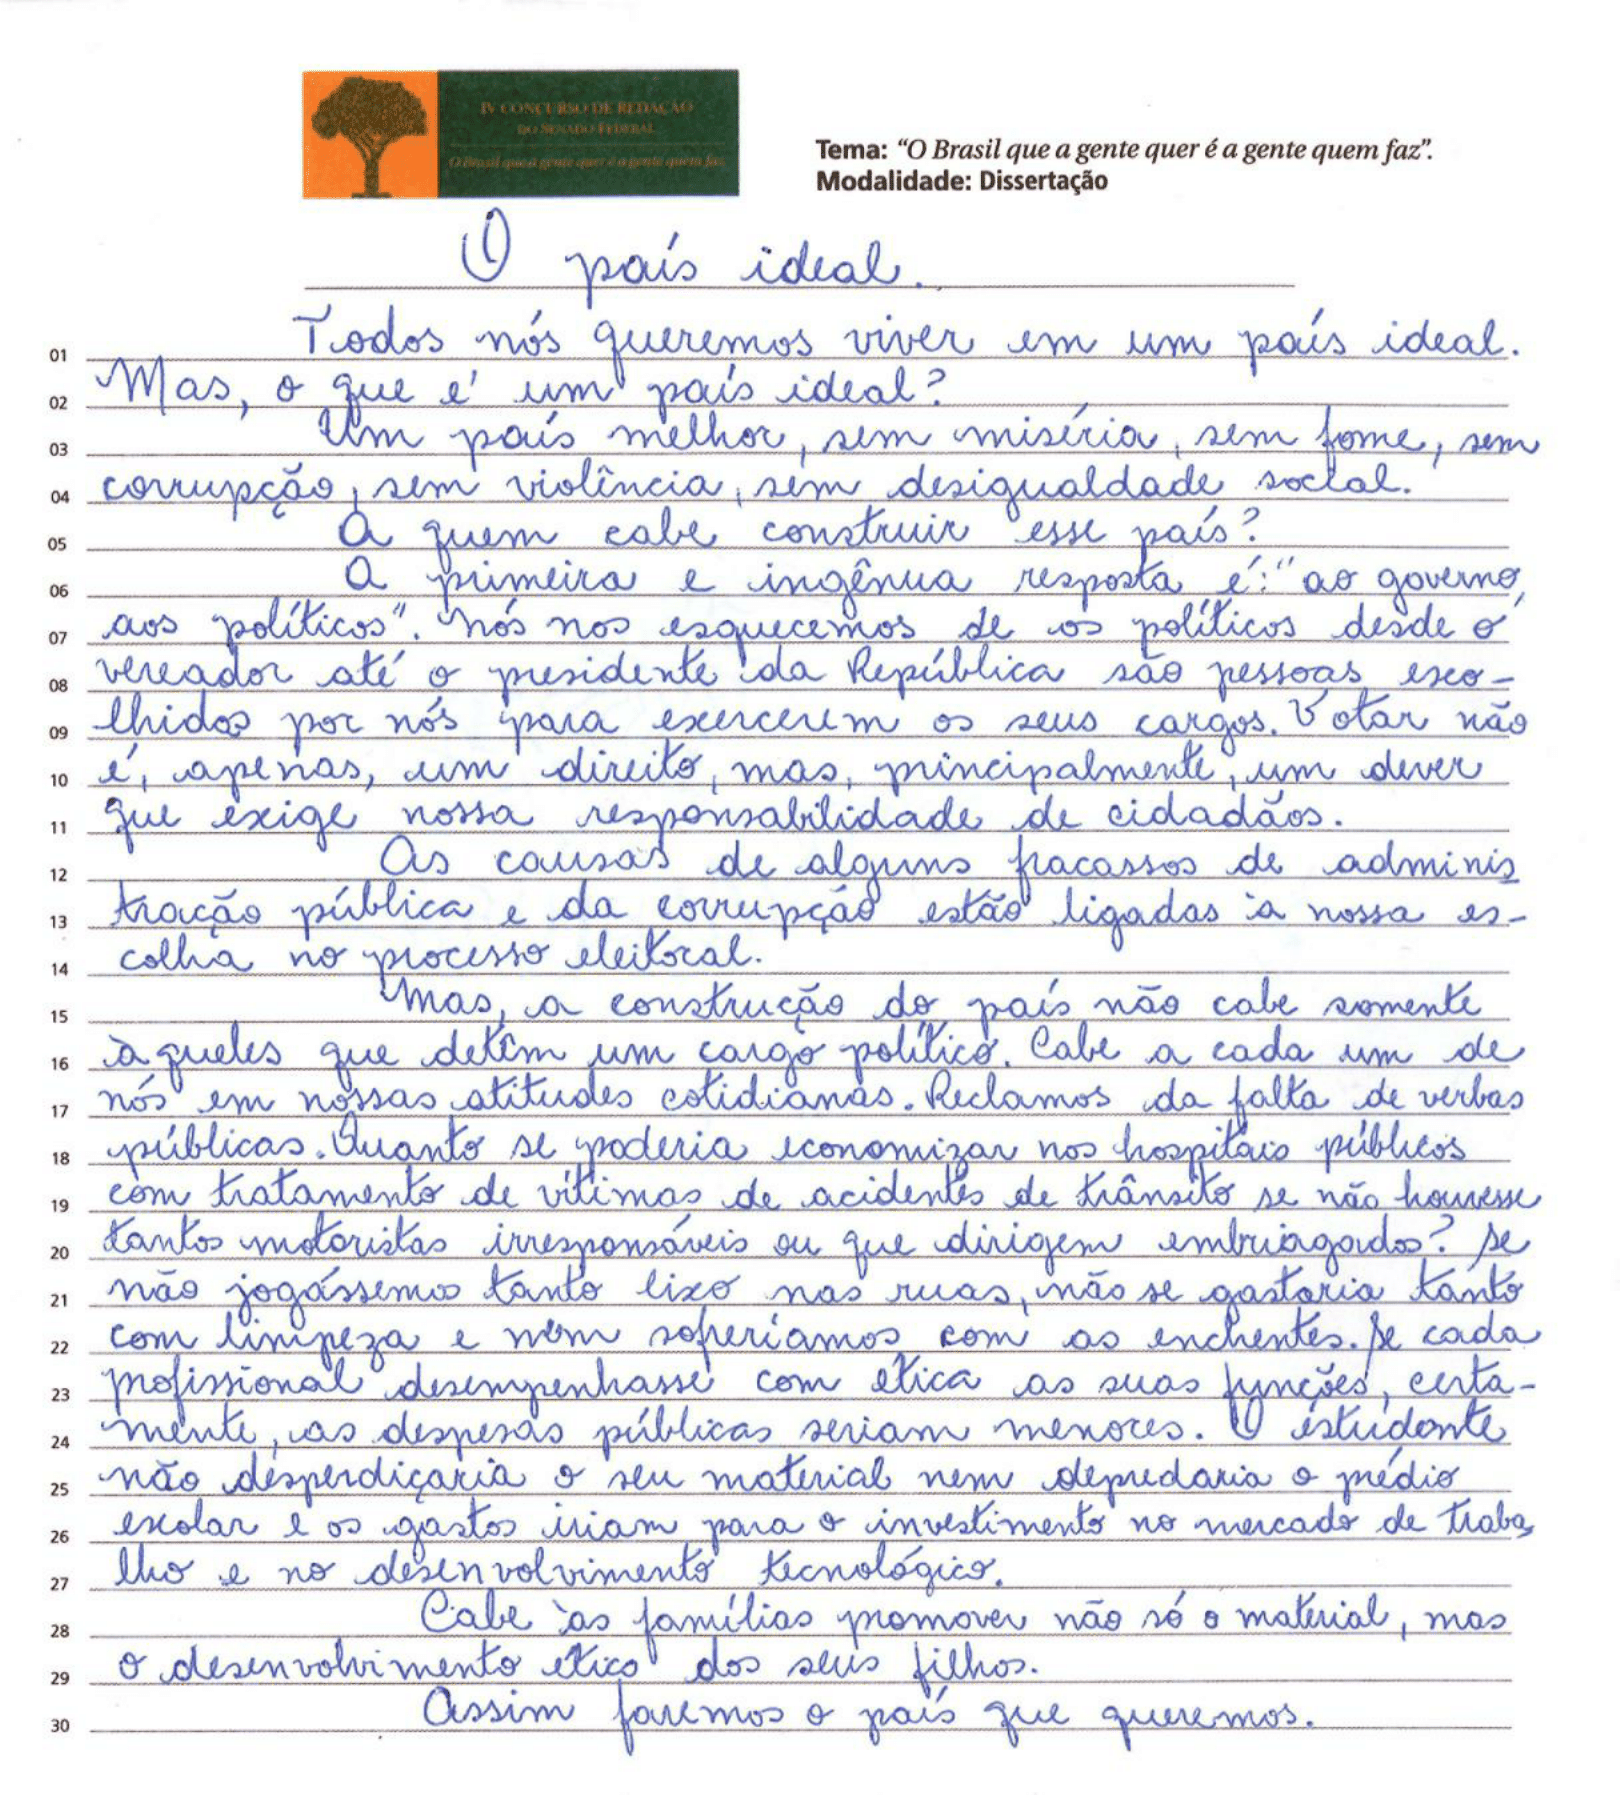 IV CONCURSO DE REDAÇÃO
DO SENADO FEDERAL
O Brasil que a gente quer é a gente quem faz
Tema: “O Brasil que a gente quer é a gente quem faz”.
Modalidade: Dissertação
O país ideal.
01 Todos nós queremos viver em um país ideal.
02 Mas, o que é um país ideal?
03 Um país melhor, sem miséria, sem fome, sem
04 corrupção, sem violência, sem desigualdade social.
05 A quem cabe construir esse país?
06 A primeira e ingênua resposta é: "ao governo,
07 aos políticos". Nós nos esquecemos de os políticos desde o
08 vereador até o presidente da República são pessoas esco-
09 lhidas por nós para exercerem os seus cargos. Votar não
10 é, apenas, um direito, mas, principalmente, um dever
11 que exige nossa responsabilidade de cidadãos.
12 As causas de alguns fracassos de adminis
13 tração pública e da corrupção estão ligadas à nossa es-
14 colha no processo eleitoral.
15 Mas, a construção do país não cabe somente
16 àqueles que detêm um cargo político. Cabe a cada um de
17 nós em nossas atitudes cotidianas. Reclamos da falta de verbas
18 públicas. Quanto se poderia economizar nos hospitais públicos
19 com tratamento de vítimas de acidentes de trânsito se não houvesse
20 tantos motoristas irresponsáveis ou que dirigem embriagados? Se
21 não jogássemos tanto lixo nas ruas, não se gastaria tanto
22 com limpeza e nem sofreríamos com as enchentes. Se cada
23 profissional desempenhasse com ética as suas funções, certa-
24 mente, as despesas públicas seriam menores. O estudante
25 não desperdiçaria o seu material nem depredaria o prédio
26 escolar e os gastos iriam para o investimento no mercado de traba
27 lho e no desenvolvimento tecnológico.
28 Cabe às famílias promover não só o material, mas
29 o desenvolvimento ético dos seus filhos.
30 Assim faremos o país que queremos.